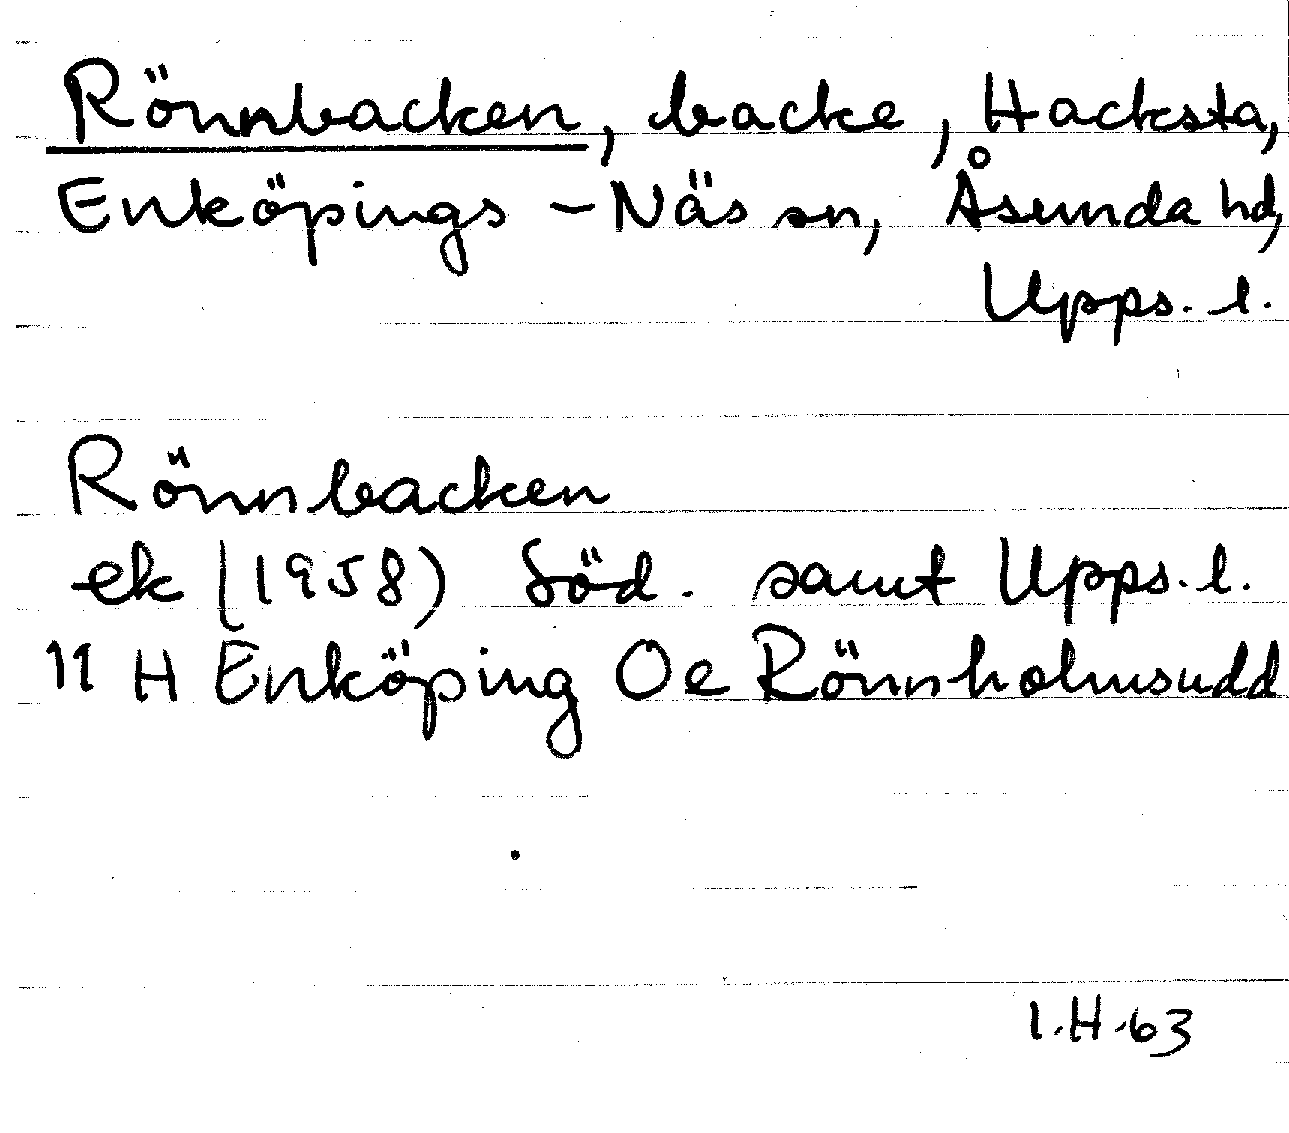 Rönnbacken, backe, Hacksta,
Enköpings-Näs sn, Åsunda hd,
Upps. l.
Rönnbacken
ek (1958) Söd. samt Upps. l.
11 H Enköping Oe Rönnholmsudd
I.H.63